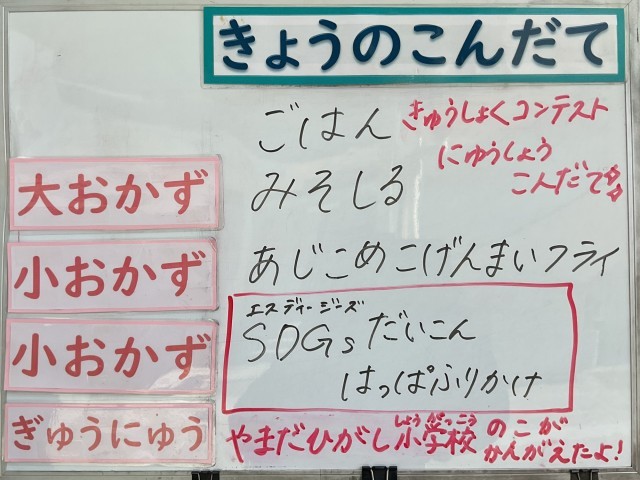 きょうのこんだて
ごはん
きゅうしょくコンテスト
にゅうしょう
こんだて
大おかず
みそしる
小おかず
あじこめこげんまいフライ
小おかず
エスディージーズ
SDGsだいこん
はっぱふりかけ
ぎゅうにゅう
しょうがっこう
やまだひがし小学校のこが
かんがえたよ!